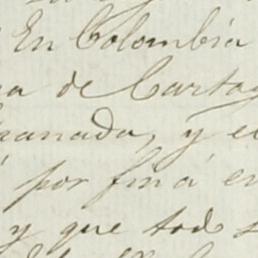 En Colombia
a de Cartag
ranada, y e
por fin á en
y que todo s